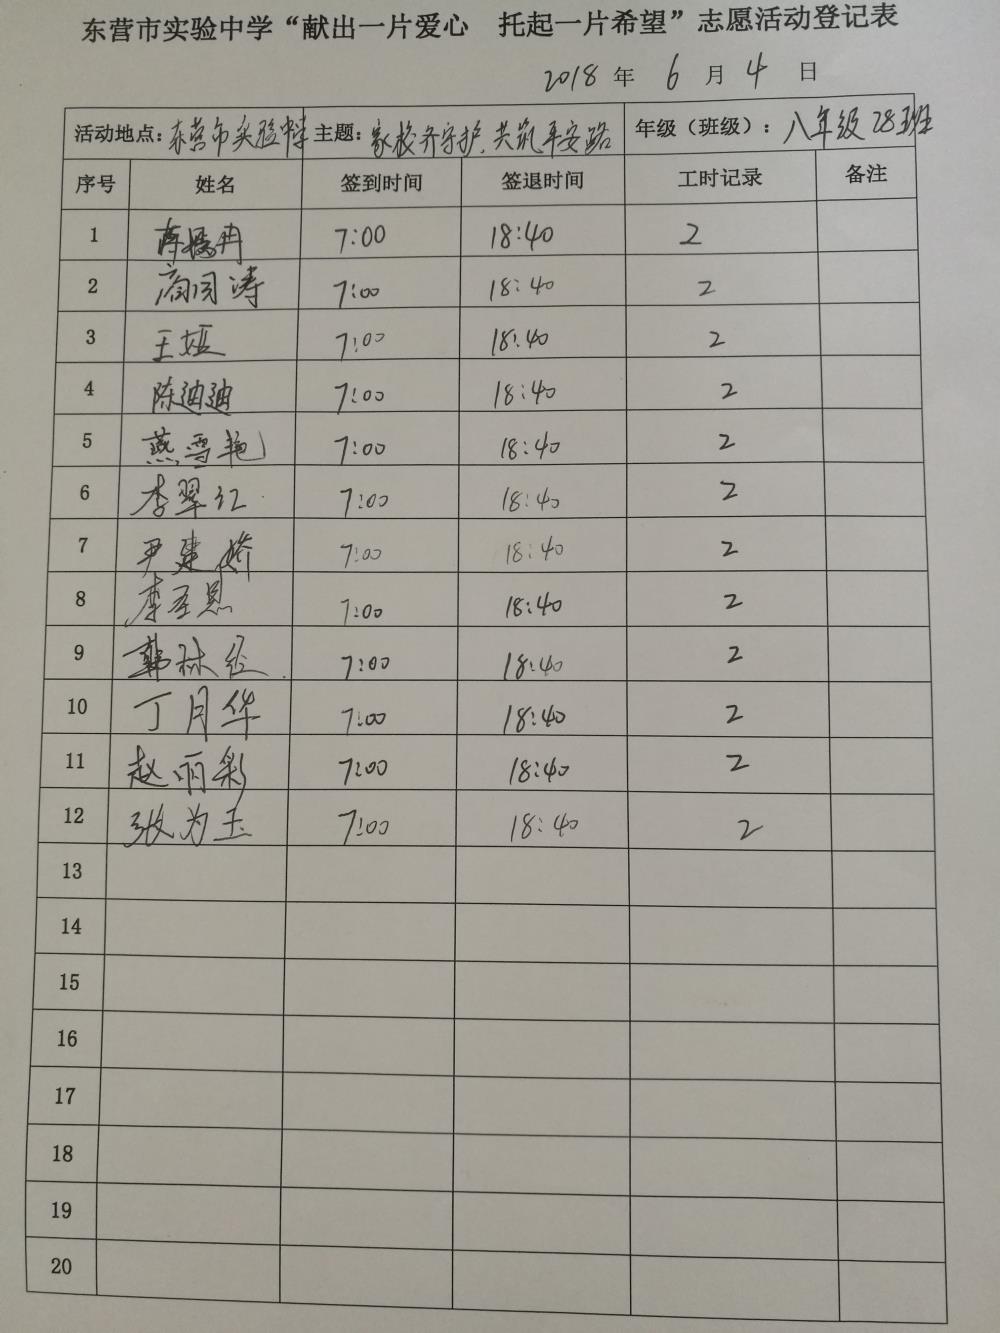 东营市实验中学“献出一片爱心 托起一片希望”志愿活动登记表
2018 年 6 月 4 日
活动地点：东营市实验中学 主题：家校齐守护，共筑平安路 年级（班级）：八年级28班
序号 姓名 签到时间 签退时间 工时记录 备注
1 7:00 18:40 2
2 涛 7:00 18:40 2
3 王娅 7:00 18:40 2
4 陈迪迪 7:00 18:40 2
5 燕雪艳 7:00 18:40 2
6 李翠红 7:00 18:40 2
7 尹建娇 7:00 18:40 2
8 李圣恩 7:00 18:40 2
9 韩林 7:00 18:40 2
10 丁月华 7:00 18:40 2
11 赵丽彩 7:00 18:40 2
12 张为玉 7:00 18:40 2
13
14
15
16
17
18
19
20